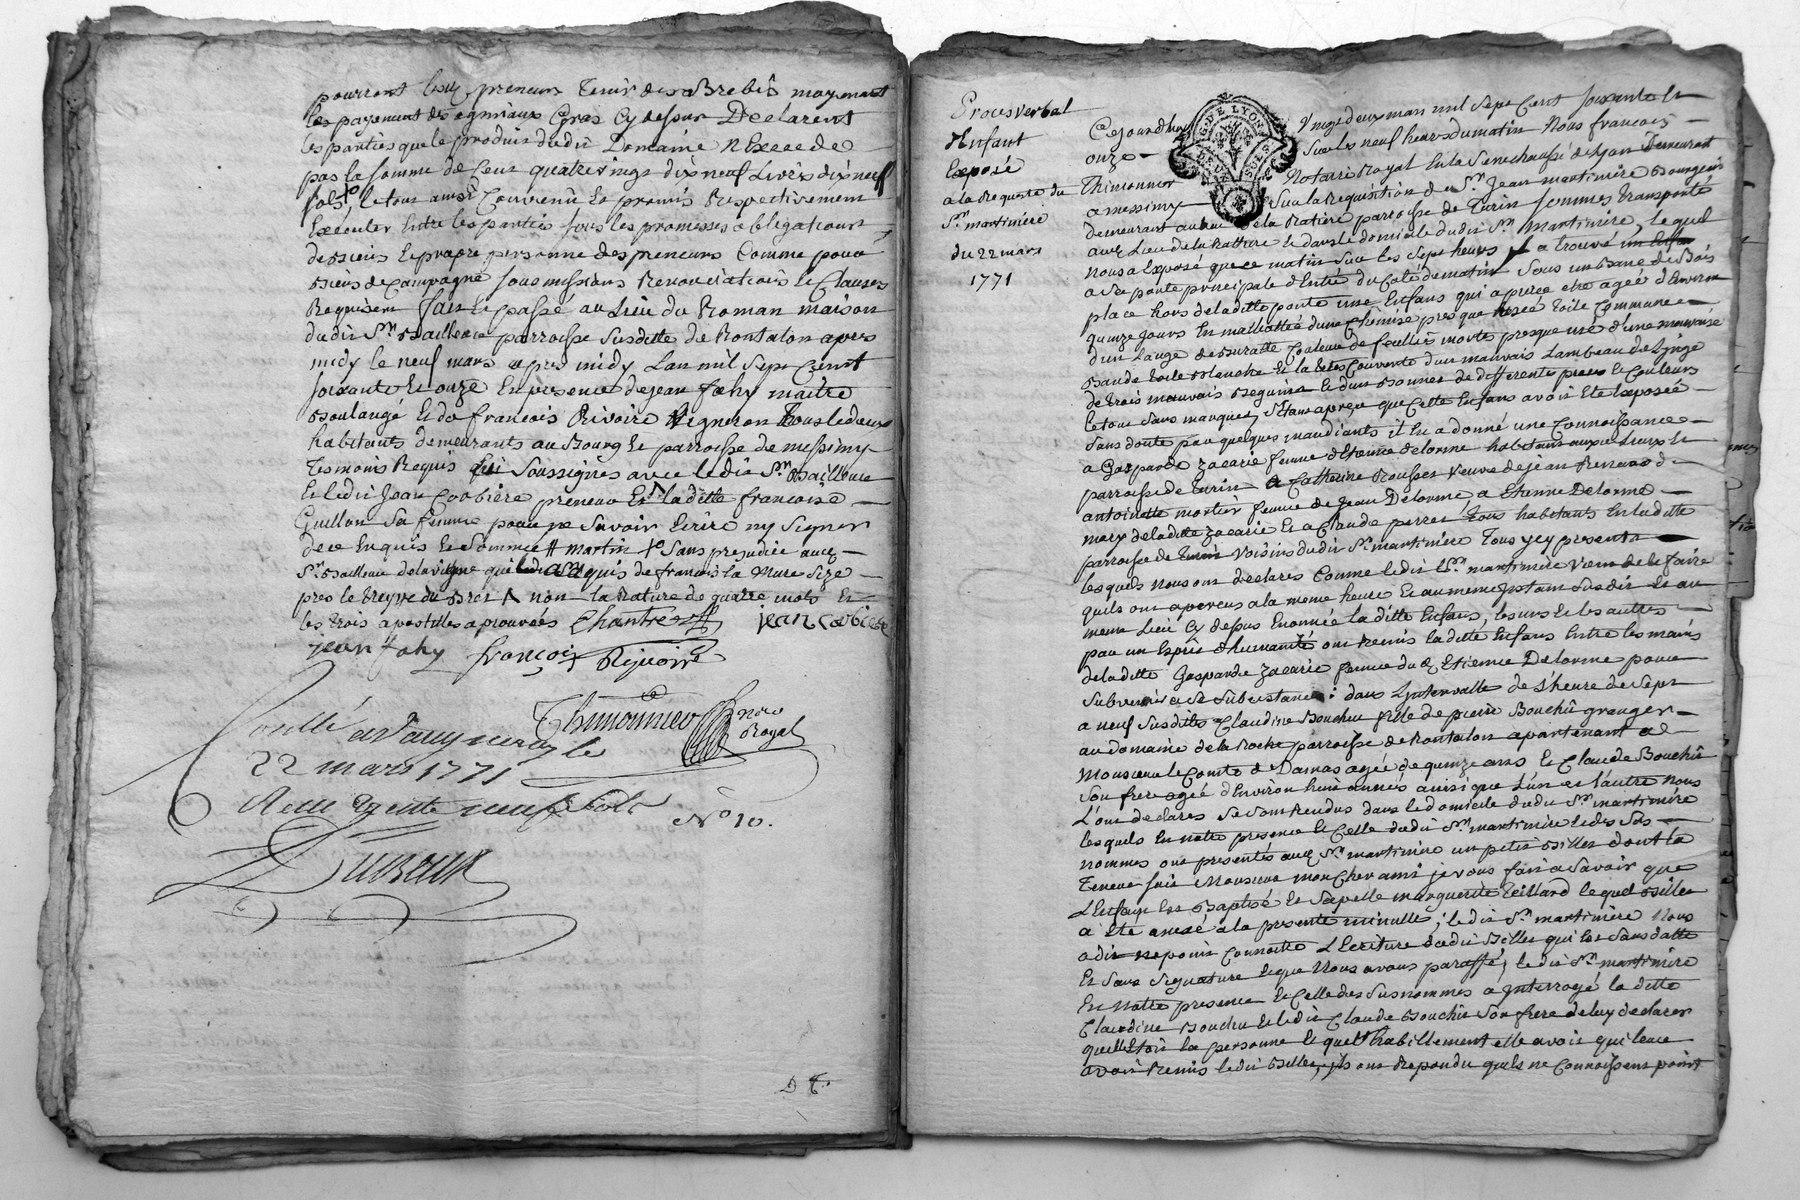 pourront lesd. preneurs tenir des Brebis moyenant
les payement des agneaux gras cy dessus Declarent
les parties que le produit dudit Domaine n'Exede
pas la somme de Cent quatrevingt dix neuf Livres dix neuf
sols, le tout ainsi Convenu et promis Respectivement
Exécuter Entre les parties sous les promesses obligations
des siens et propre personne des preneurs Comme pour
Biens de Campagne soumissions Renonciations et Clauses
Requises fait et passé au Lieu du Roman maison
dudit Sr. Bailleur parroisse susditte de Rontalon apres
midy le neuf mars apres midy Lan mil sept Cent
soixante et onze En presence de jean fahy maître
Boulangé et de françois Rivoire vigneron tous les deux
habitants demeurants au Bourg et parroisse de messimy
temoins Requis qui soussignés avec ledit Sr. Bailleur
et ledit Jean Corbière preneur Et la ditte francoise
Guillon sa femme pour ne savoir Ecrire ny signer
de ce Enquis et sommée # martin sans prejudice auxd.
Sr. Bailleur de la vigne quil a aquis de francois la Mure size
pres le treyve du Bret non la Rature de quatre mots Et
les trois apostilles aprouvées Chantre jean Corbiere
jean fahy françois Rivoire
Thimonnier nore
Royal
Conllé a Vaugneray le
22 mars 1771
Reçu trente neuf sols
No 10.
D T.
Proces verbal
d'Enfant
Exposé
a la Requeste du
Sr. martiniere
du 22 mars
1771
G. DE LYON
Cejourdhuy vingt deux mars mil sept Cent soixante et
onze sur les neuf heures du matin Nous francois
Thimonnier Notaire Royal En la Senechaussé de Lyon Demeurant
a messimy sur la Requisition de Sr. Jean martiniere Bourgeois
demeurant au lieu de la Ratiere parroisse de Turin sommes transporté
aud. Lieu de la Ratiere et dans le domicile dudit Sr. Martiniere, lequel
nous a Exposé que ce matin sur les sept heures il a trouvé un Enfan
a sa porte principale d'Entré du Coté de matin sous un Banc de Bois
place hors de la ditte porte une Enfant qui a parue etre ageé d'Environ
quinze jours En maillottée d'une Chemise presque usée toile Commune
d'un Lange de Buratte Couleur de feuille morte presque usé d'une mauvaise
Bande toile Blanche et la tete Couverte d'un mauvais Lambeau de Linge
de trois mauvais Beguins et d'un Bonnet de differentes pieces et Couleurs
le tout sans marques, s'étant aperçu que Cette Enfant avoit Eté Exposée
sans doute par quelques mandiants il En a donné une Connoissance
a Gasparde Zacarie femme d'Etienne delorme habitant auxd. Lieux et
parroisse de turin a Catherine Rousset veuve de jean Renard
antoinette mortier femme de Jean Delorme, a Etienne Delorme
mary de la ditte Zacarie Et a Claude perret tous habitants En la ditte
parroisse de turin voisins dudit Sr. martiniere tous jcy presents
lesquels nous ont declarés Comme ledit Sr. martiniere vient de le faire
quils ont apercus a la meme heure Et au meme instant susdit Et au
meme Lieu Cy dessus Enoncé la ditte Enfant, les uns Et les autres
par un Esprit d'humanité ont Remis la ditte Enfant Entre les mains
de la ditte Gasparde Zacarie femme dud. Etienne Delorme pour
subvenir a sa subsistance: dans L'intervalle de L'heure de sept
a neuf susdittes Claudine Bouchu fille de pierre Bouchu granger
au domaine de la Roche parroisse de Rontalon apartenant a
Monsieur le Comte de Damas agée de quinze ans et Claude Bouchu
son frere agé d'Environ huit annés ainsi que L'un et L'autre nous
L'ont declarés se sont Rendus dans le domicile dudit Sr. martiniere
lesquels En notre presence et Celle dudit Sr. martiniere ledes sus
nommes ont presentés aud. Sr. martiniere un petit Billet dont la
teneur suit Monsieur mon Cher ami je vous fait a savoir que
L'Enfant Est Baptisé et s'apelle marguerite Teillard lequel Billet
a eté anexé a la presente minutte, ledit Sr. martiniere Nous
a dit ne point Connoitre L'Ecriture dudit Billet qui Est sans datte
Et sans signature Lequel Nous avons paraffé, ledit Sr. martiniere
En notre presence et Celle des susnommes a Interrogé la ditte
Claudine Bouchu Et ledit Claude Bouchu son frere de luy declarer
quelle Etoit la personne et quel habillement elle avoit qui leur
avoit Remis ledit Billet, ils ont Repondu quils ne Connoissent point